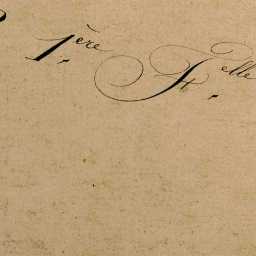 1.ère F.elle